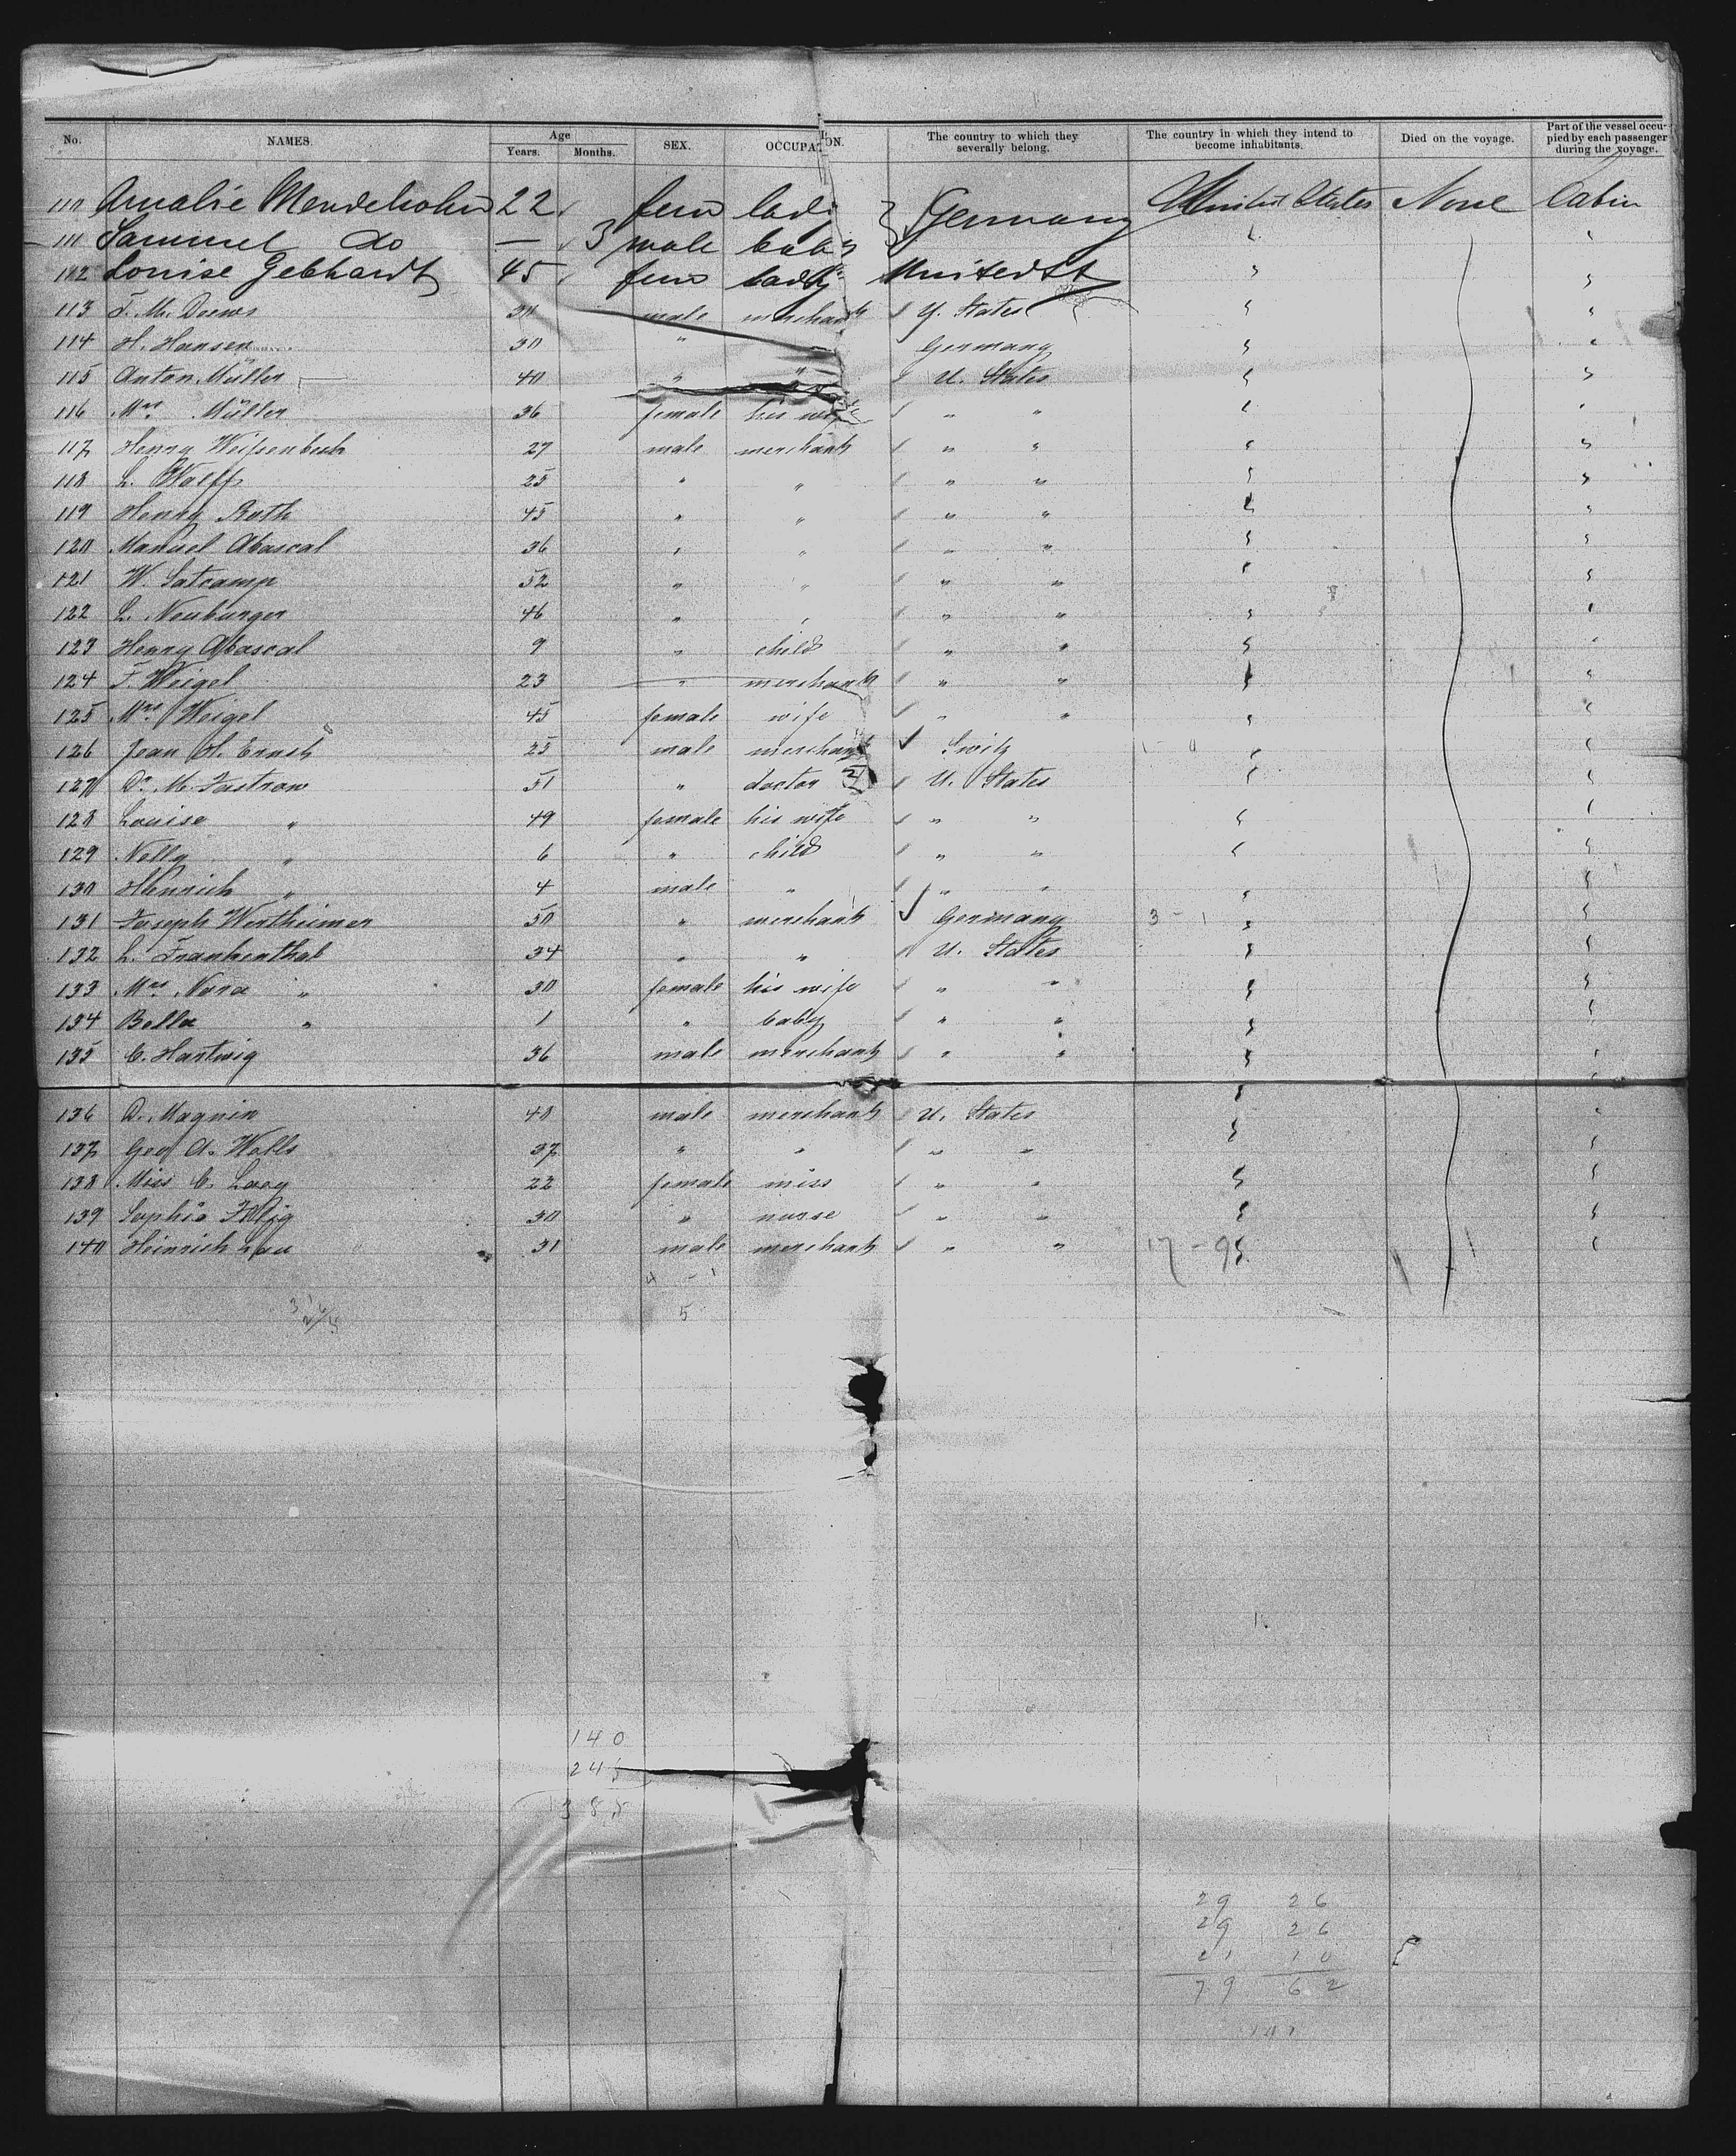 No. NAMES. Age Years. Months. SEX. OCCUPATION. The country to which they severally belong. The country in which they intend to become inhabitants. Died on the voyage. Part of the vessel occupied by each passenger during the voyage.
110 Amalie Mendelsohn 22 fem lady Germany United States None Cabin
111 Sammel do — 3 male baby "
112 Louise Gebhardt 45 fem lady United St "
113 F. M. Drews 30 male merchant U. States "
114 H. Hansen 30 " Germany "
115 Anton Müller 40 " " U. States "
116 Mrs Müller 36 female his wife " "
117 Henry Weissenbech 27 male merchant " "
118 L. Wolff 25 " " " "
119 Henry Ruth 45 " " " "
120 Manuel Abascal 36 " " " "
121 W. Satcamp 52 " " " "
122 L. Neuburger 46 " " " "
123 Henry Abascal 9 " child " "
124 F. Weigel 23 " merchant " "
125 Mrs Weigel 45 female wife " "
126 Jean H. Ernst 25 male merchant Switz "
127 Dr. M. Tastrow 51 " doctor U. States "
128 Louise " 49 female his wife " "
129 Nelly " 6 " child " "
130 Heinrich " 4 male " " "
131 Joseph Wertheimer 50 " merchant Germany 3 - 1 "
132 L. Frankenthal 34 " " U. States "
133 Mrs Nara " 30 female his wife " "
134 Bella " 1 " baby " "
135 C. Hartwig 36 male merchant " "
136 D. Magnin 40 male merchant U. States "
137 Geo A. Wells 37 " " " "
138 Miss C. Laey 22 female miss " "
139 Sophie 30 " nurse " "
140 Heinrich Lau 31 male merchant " " 17 - 9
4 - 1
5
140
245
385
29 26
29 26
21 10
79 62
141